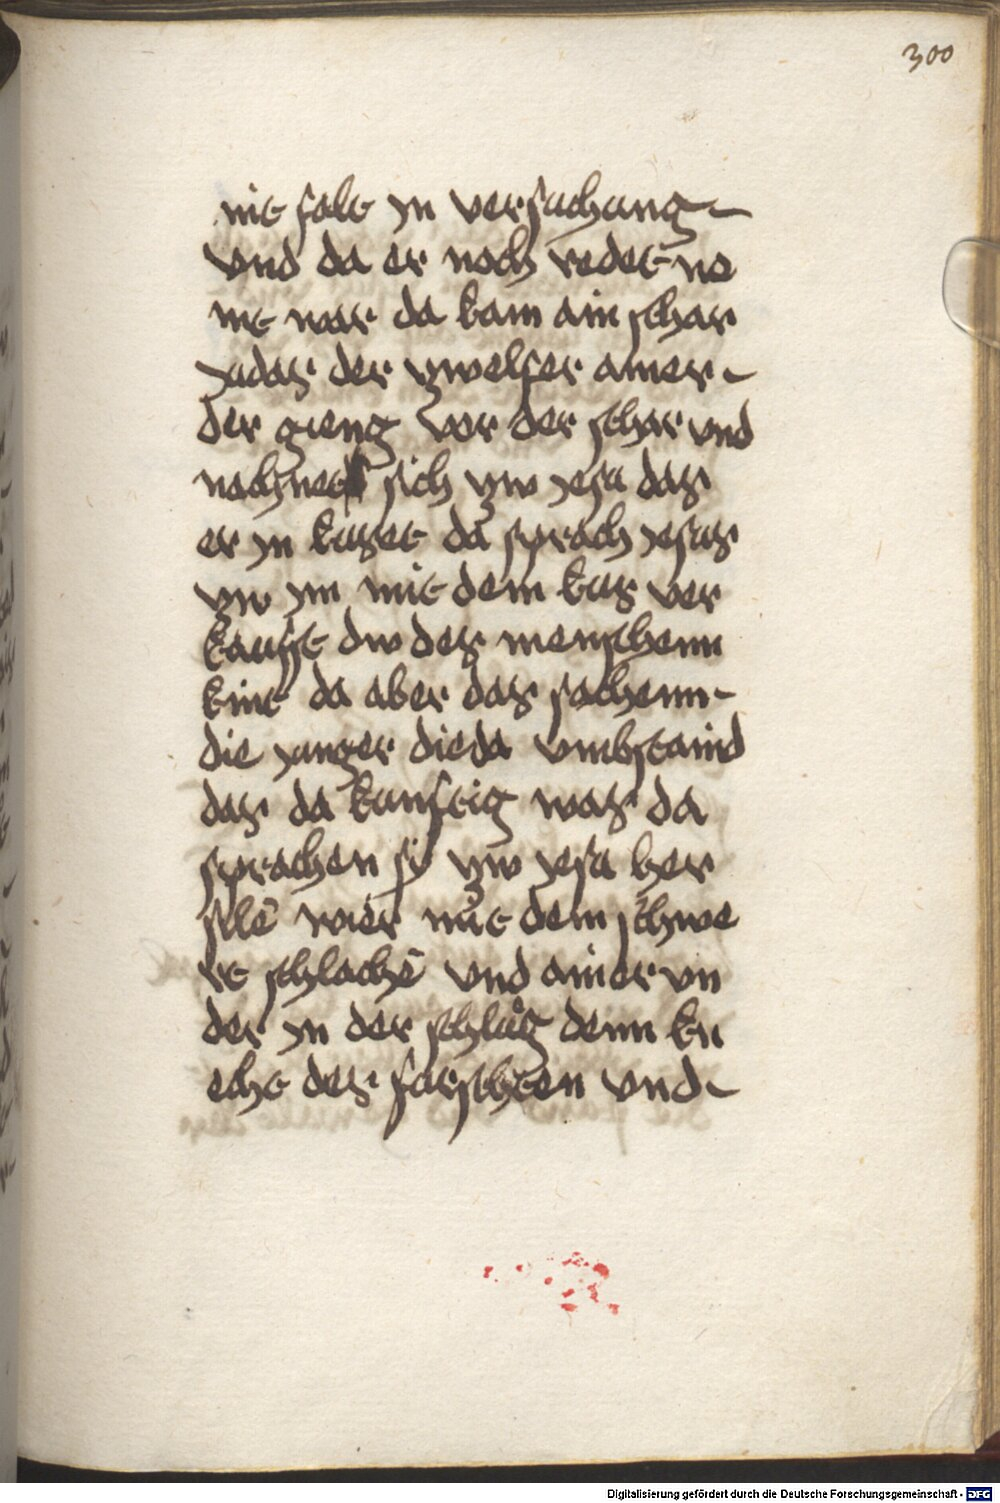 300
nit falt yn versuchung
vnd da er noch redet ne
mt war da kam ain schar
yudas der zwelfer ainer
der gieng vor der schar vnd
nachnet sich zw yesu das
er yn kuset da sprach yesus
zw ym mit dem kus ver
kaufst dw des menschenn
kint da aber das sachenn
die yunger die da vmbstaind
das da kunftig was da
sprachen sy zw yesu her
slē wier mit dem schwe
rt schlachē vnd ainer vn
der yn der schlůg denn kn
echt des furschten vnd
Digitalisierung gefördert durch die Deutsche Forschungsgemeinschaft - DFG